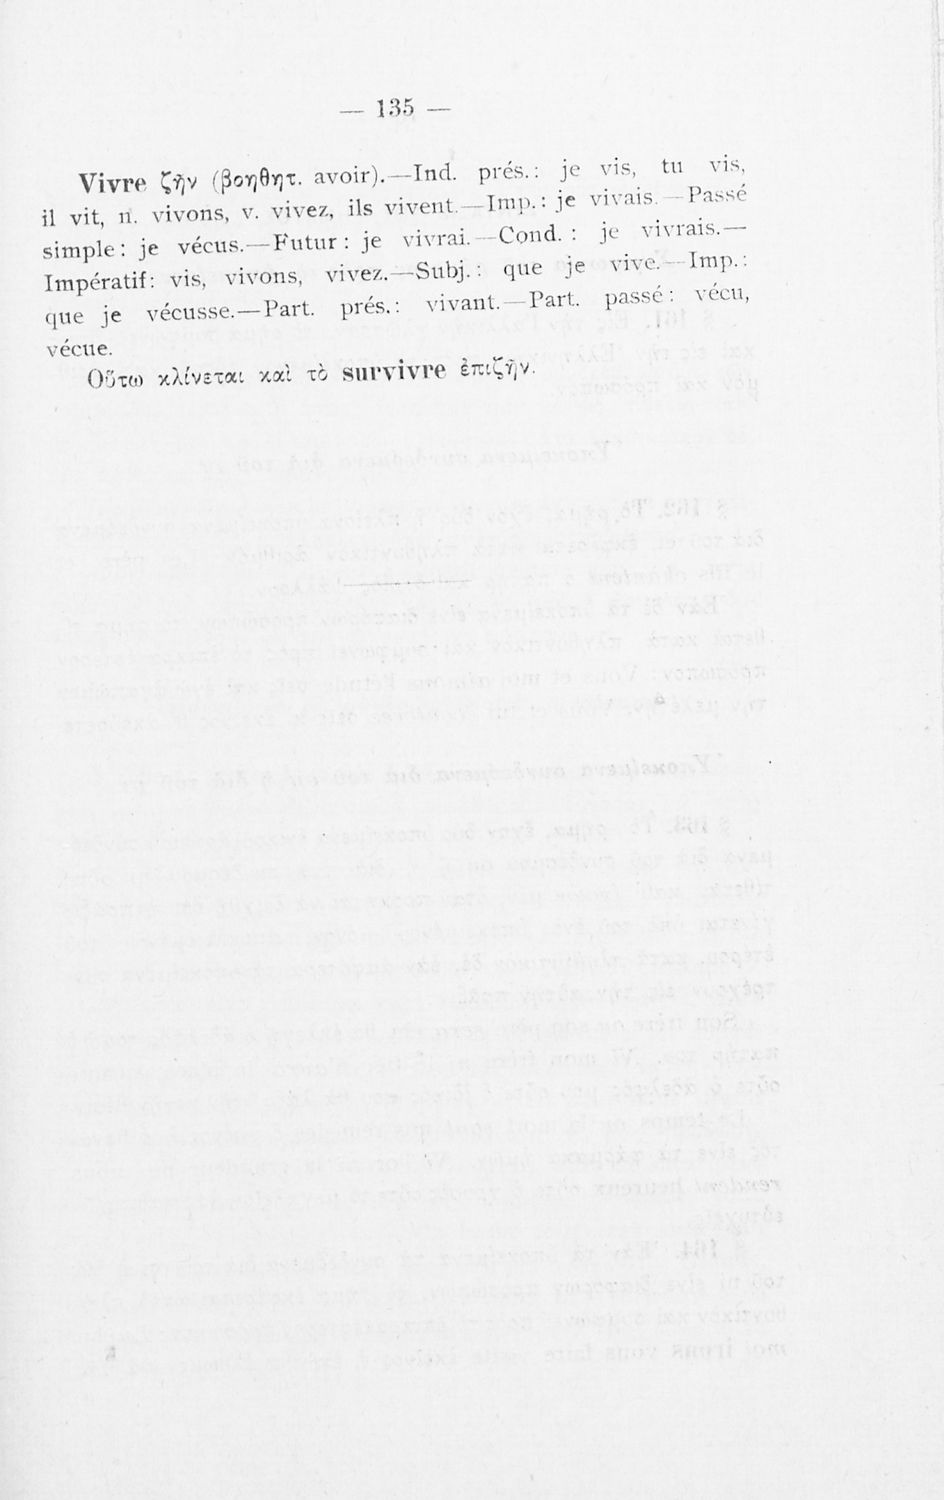 — 135 —
Vivre ζῆν (βοηθητ. avoir).—Ind. prés.: je vis, tu vis,
il vit, n. vivons, v. vivez, ils vivent.—Imp.: je vivais.—Passé
simple: je vécus.—Futur: je vivrai.—Cond. : je vivrais.—
Impératif: vis, vivons, vivez.—Subj.: que je vive.—Imp.:
que je vécusse.—Part. prés.: vivant.—Part. passé: vécu,
vécue.
Οὕτω κλίνεται καὶ τὸ survivre ἐπιζῆν.